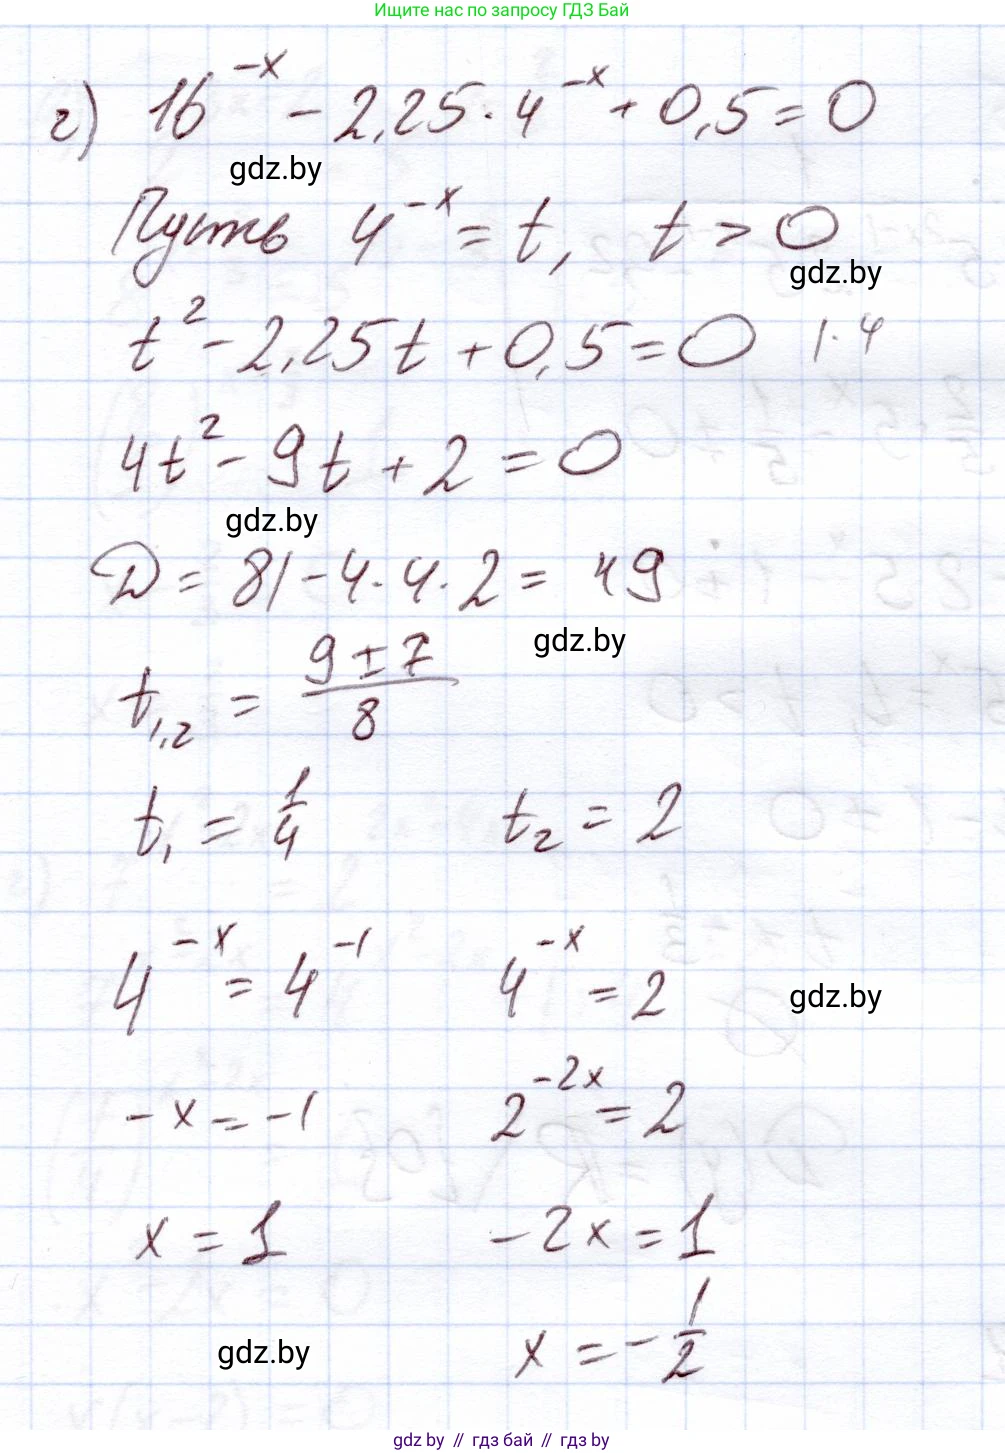 Ищите нас по запросу ГДЗ Бай
г) 16^{-x} - 2,25 · 4^{-x} + 0,5 = 0
gdz.by
Пусть 4^{-x} = t, t > 0
gdz.by
t² - 2,25t + 0,5 = 0 | · 4
4t² - 9t + 2 = 0
gdz.by
D = 81 - 4 · 4 · 2 = 49
gdz.by
t₁,₂ = (9 ± 7)/8
t₁ = 1/4 t₂ = 2
4^{-x} = 4^{-1} 4^{-x} = 2
gdz.by
-x = -1 2^{-2x} = 2
x = 1 -2x = 1
gdz.by x = -1/2
gdz by // гдз бай // гдз by